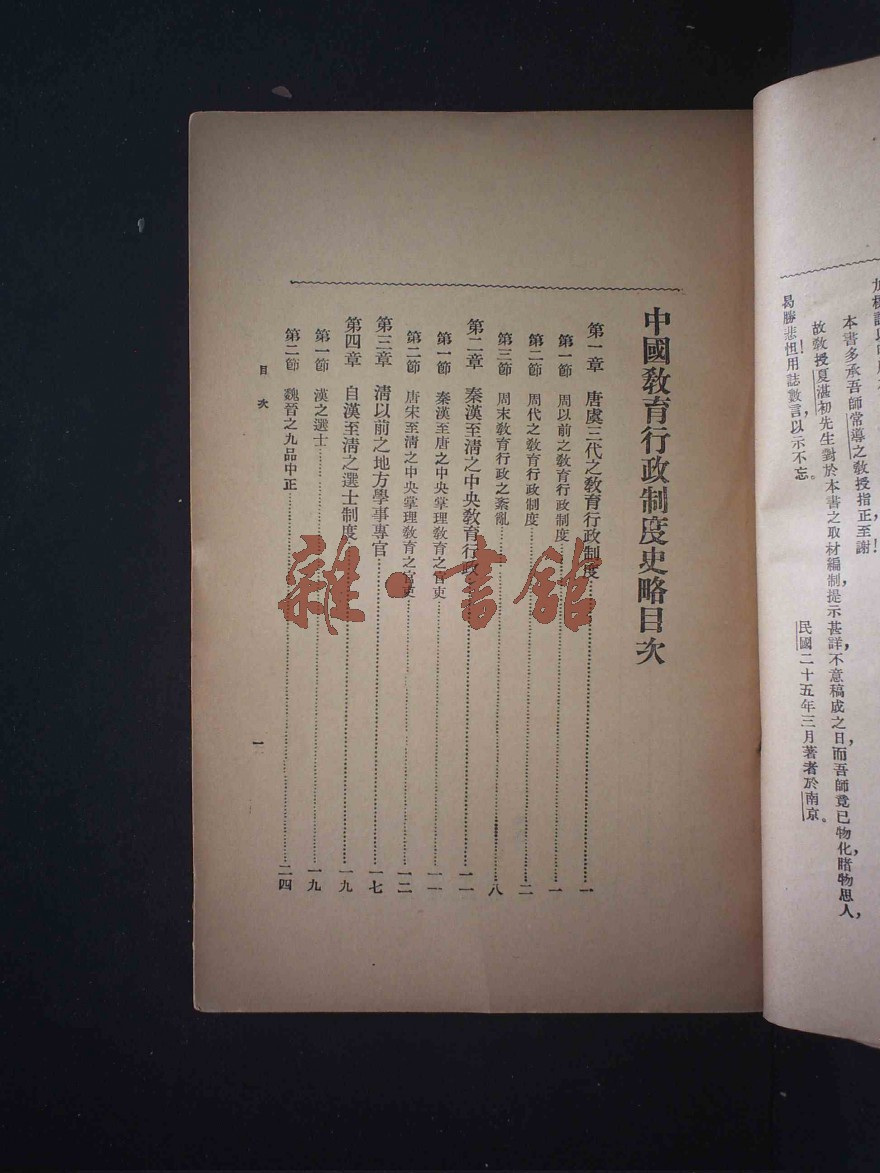 本書多承吾師常導之教授指正,至謝!
故教授夏湛初先生對於本書之取材編制,提示甚詳,不意稿成之日,而吾師竟已物化,睹物思人,
曷勝悲怛!用誌數言,以示不忘。
民國二十五年三月著者於南京。
中國教育行政制度史略目次
第一章 唐虞三代之教育行政制度……一
第一節 周以前之教育行政制度……一
第二節 周代之教育行政制度……二
第三節 周末教育行政之紊亂……八
第二章 秦漢至清之中央教育行政……一一
第一節 秦漢至唐之中央掌理教育之官吏……一一
第二節 唐宋至清之中央掌理教育之官吏……一二
第三章 清以前之地方學事專官……一七
第四章 自漢至清之選士制度……一九
第一節 漢之選士……一九
第二節 魏晉之九品中正……二四
目次
一
雜·書館